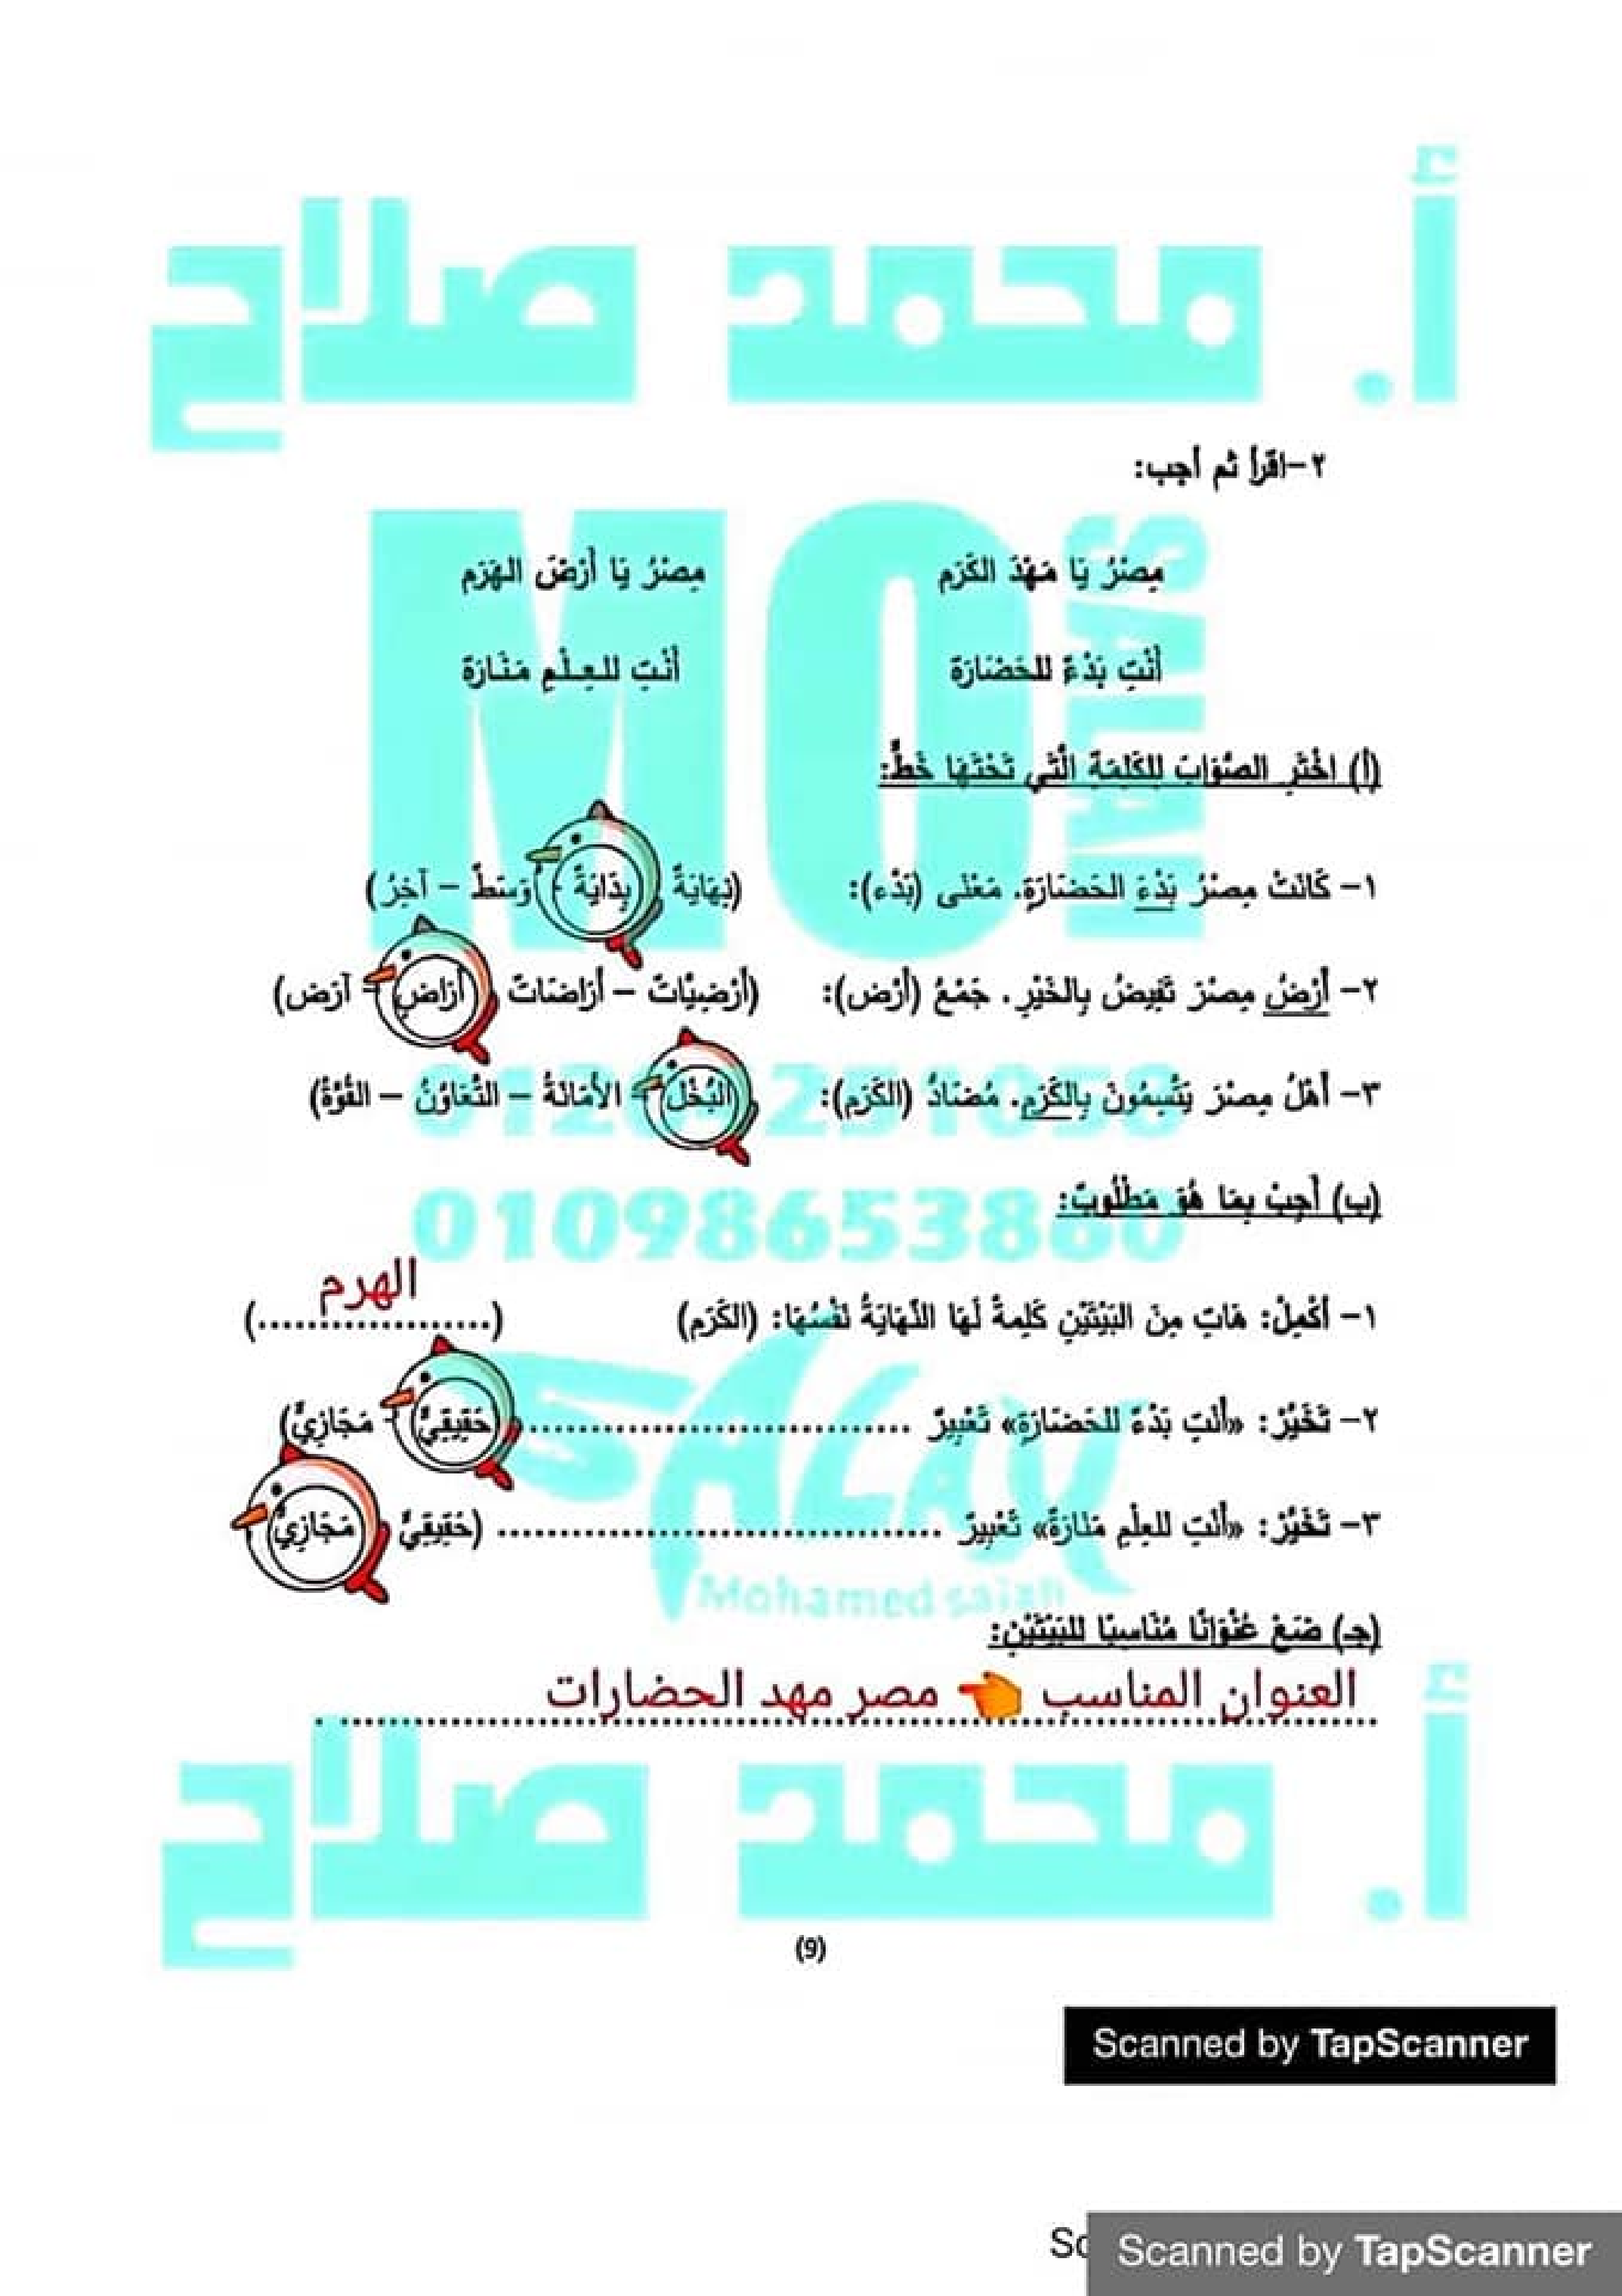 أ. محمد صلاح
٢-اقرأ ثم أجب:
MO SALAH
مِصْرُ يَا مَهْدَ الكَرَم مِصْرُ يَا أَرْضَ الهَرَم
أَنْتِ بَدْءٌ للحَضَارَة أَنْتِ للعِلْمِ مَنَارَة
(أ) اخْتَرِ الصَّوَابَ لِلكَلِمَةِ الَّتِي تَحْتَهَا خَطٌّ:
١- كَانَتْ مِصْرُ بَدْءَ الحَضَارَةِ. مَعْنَى (بَدْء): (نِهَايَةٌ - بِدَايَةٌ - وَسَطٌ - آخِرُ)
٢- أَرْضُ مِصْرَ تَفِيضُ بِالخَيْرِ. جَمْعُ (أَرْض): (أَرْضِيَّاتٌ - أَرَاضَاتٌ - أَرَاضٍ - آرَض)
٣- أَهْلُ مِصْرَ يَتَّسِمُونَ بِالكَرَمِ. مُضَادُّ (الكَرَم): (البُخْلُ - الأَمَانَةُ - التَّعَاوُنُ - القُوَّةُ)
(ب) أَجِبْ بِمَا هُوَ مَطْلُوبٌ:
01098653860
الهرم
١- أَكْمِلْ: هَاتِ مِنَ البَيْتَيْنِ كَلِمةً لَهَا النِّهَايَةُ نَفْسُهَا: (الكَرَم) (...................)
٢- تَخَيَّرْ: «أَنْتِ بَدْءٌ للحَضَارَةِ» تَعْبِيرٌ ................................ (حَقِيقِيٌّ - مَجَازِيٌّ)
٣- تَخَيَّرْ: «أَنْتِ للعِلْمِ مَنَارَةٌ» تَعْبِيرٌ ..................................... (حَقِيقِيٌّ - مَجَازِيٌّ)
SALAH
Mohamed salah
(جـ) ضَعْ عُنْوَانًا مُنَاسِبًا للبَيْتَيْنِ:
العنوان المناسب 👈 مصر مهد الحضارات
أ. محمد صلاح
(9)
Scanned by TapScanner
Sc Scanned by TapScanner